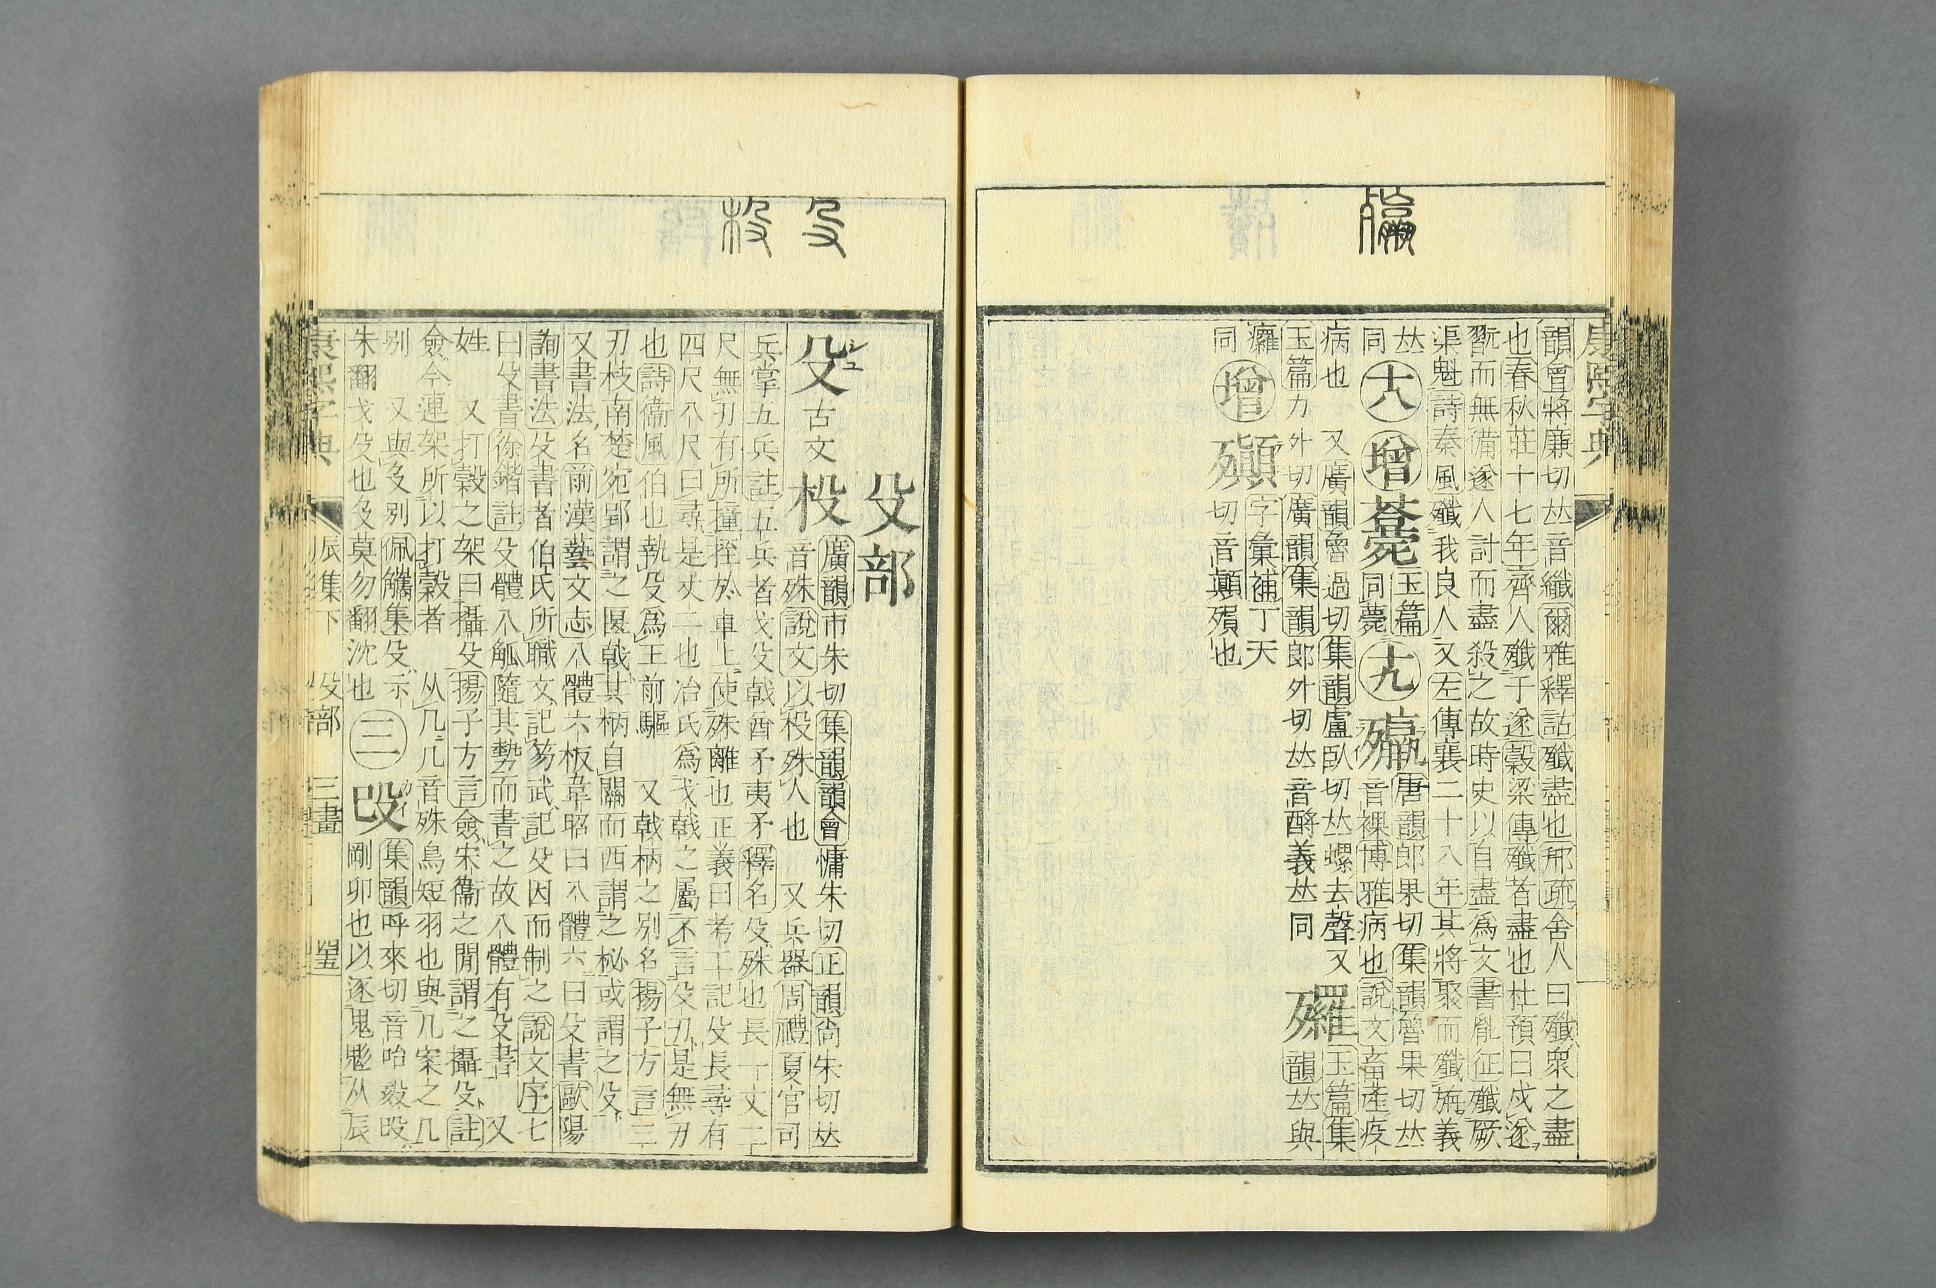 𣩴
康熙字典
韻會將廉切𠀤音纖爾雅釋詁殲盡也郉疏舍人曰殲衆之盡
也春秋莊十七年齊人殲于遂穀梁傳殲者盡也杜預曰戍遂
翫而無備遂人討而盡殺之故時史以自盡爲文書胤征殲厥
渠魁詩秦風殲我良人又左傳襄二十八年其將聚而殲旃義
𠀤同 十八 增 玉篇同薨 十九 唐韻郎果切集韻魯果切𠀤音裸博雅病也說文畜產疫
病也 又廣韻魯過切集韻盧臥切𠀤螺去聲又
玉篇力外切廣韻集韻郎外切𠀤音酹義𠀤同
玉篇集韻𠀤與
同 增 字彙補丁天切音顚殞也
殳 杸
殳部
殳 シユ 古文 杸 廣韻市朱切集韻韻會慵朱切正韻尚朱切𠀤
音殊說文以杸殊人也 又兵器周禮夏官司
兵掌五兵註五兵者戈殳戟酋矛夷矛釋名殳殊也長一丈二
尺無刃有所撞挃於車上使殊離也正義曰考工記殳長尋有
四尺八尺曰尋是丈二也冶氏爲戈戟之屬不言殳刃是無刃
也詩衞風伯也執殳爲王前驅 又戟柄之別名揚子方言三
刃枝南楚宛郢謂之匽戟其柄自關而西謂之柲或謂之殳
又書法名前漢藝文志八體六板韋昭曰八體六曰殳書歐陽
詢書法殳書者伯氏所職文記笏武記殳因而制之說文序七
曰殳書徐鍇註殳體八觚隨其勢而書之故八體有殳書 又
姓 又打穀之架曰攝殳揚子方言僉宋衞之閒謂之攝殳註
僉今連架所以打穀者 从几几音殊鳥短羽也與几案之几
別 又與殳別佩觿集殳示
朱翻戈殳也殳莫勿翻沈也 三 毅 カイ 集韻呼來切音咍毅
剛卯也以逐鬼鬽从辰
康熙字典 辰集下 殳部 三畫